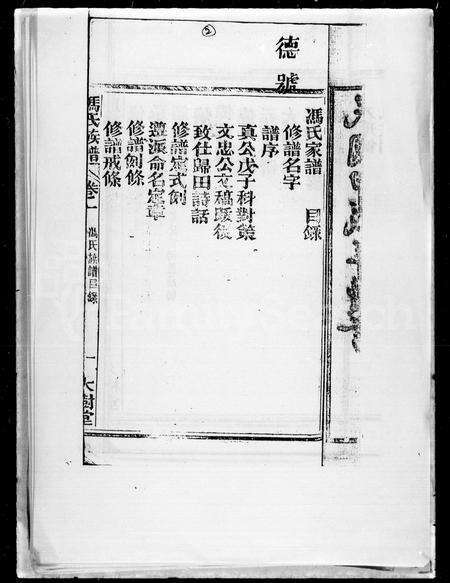 ②
德號
馮氏家譜 目錄
修譜名字
譜序
真公戊子科對策
文忠公文稿跋後
致仕歸田詩話
修譜定式例
遵派命名定章
修譜例條
修譜戒條
馮氏族譜 卷一 馮氏族譜目錄 一 大樹堂